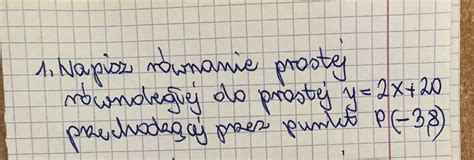 1. Napisz równanie prostej
równoległej do prostej y=2x+20
przechodzącej przez punkt P(-38)